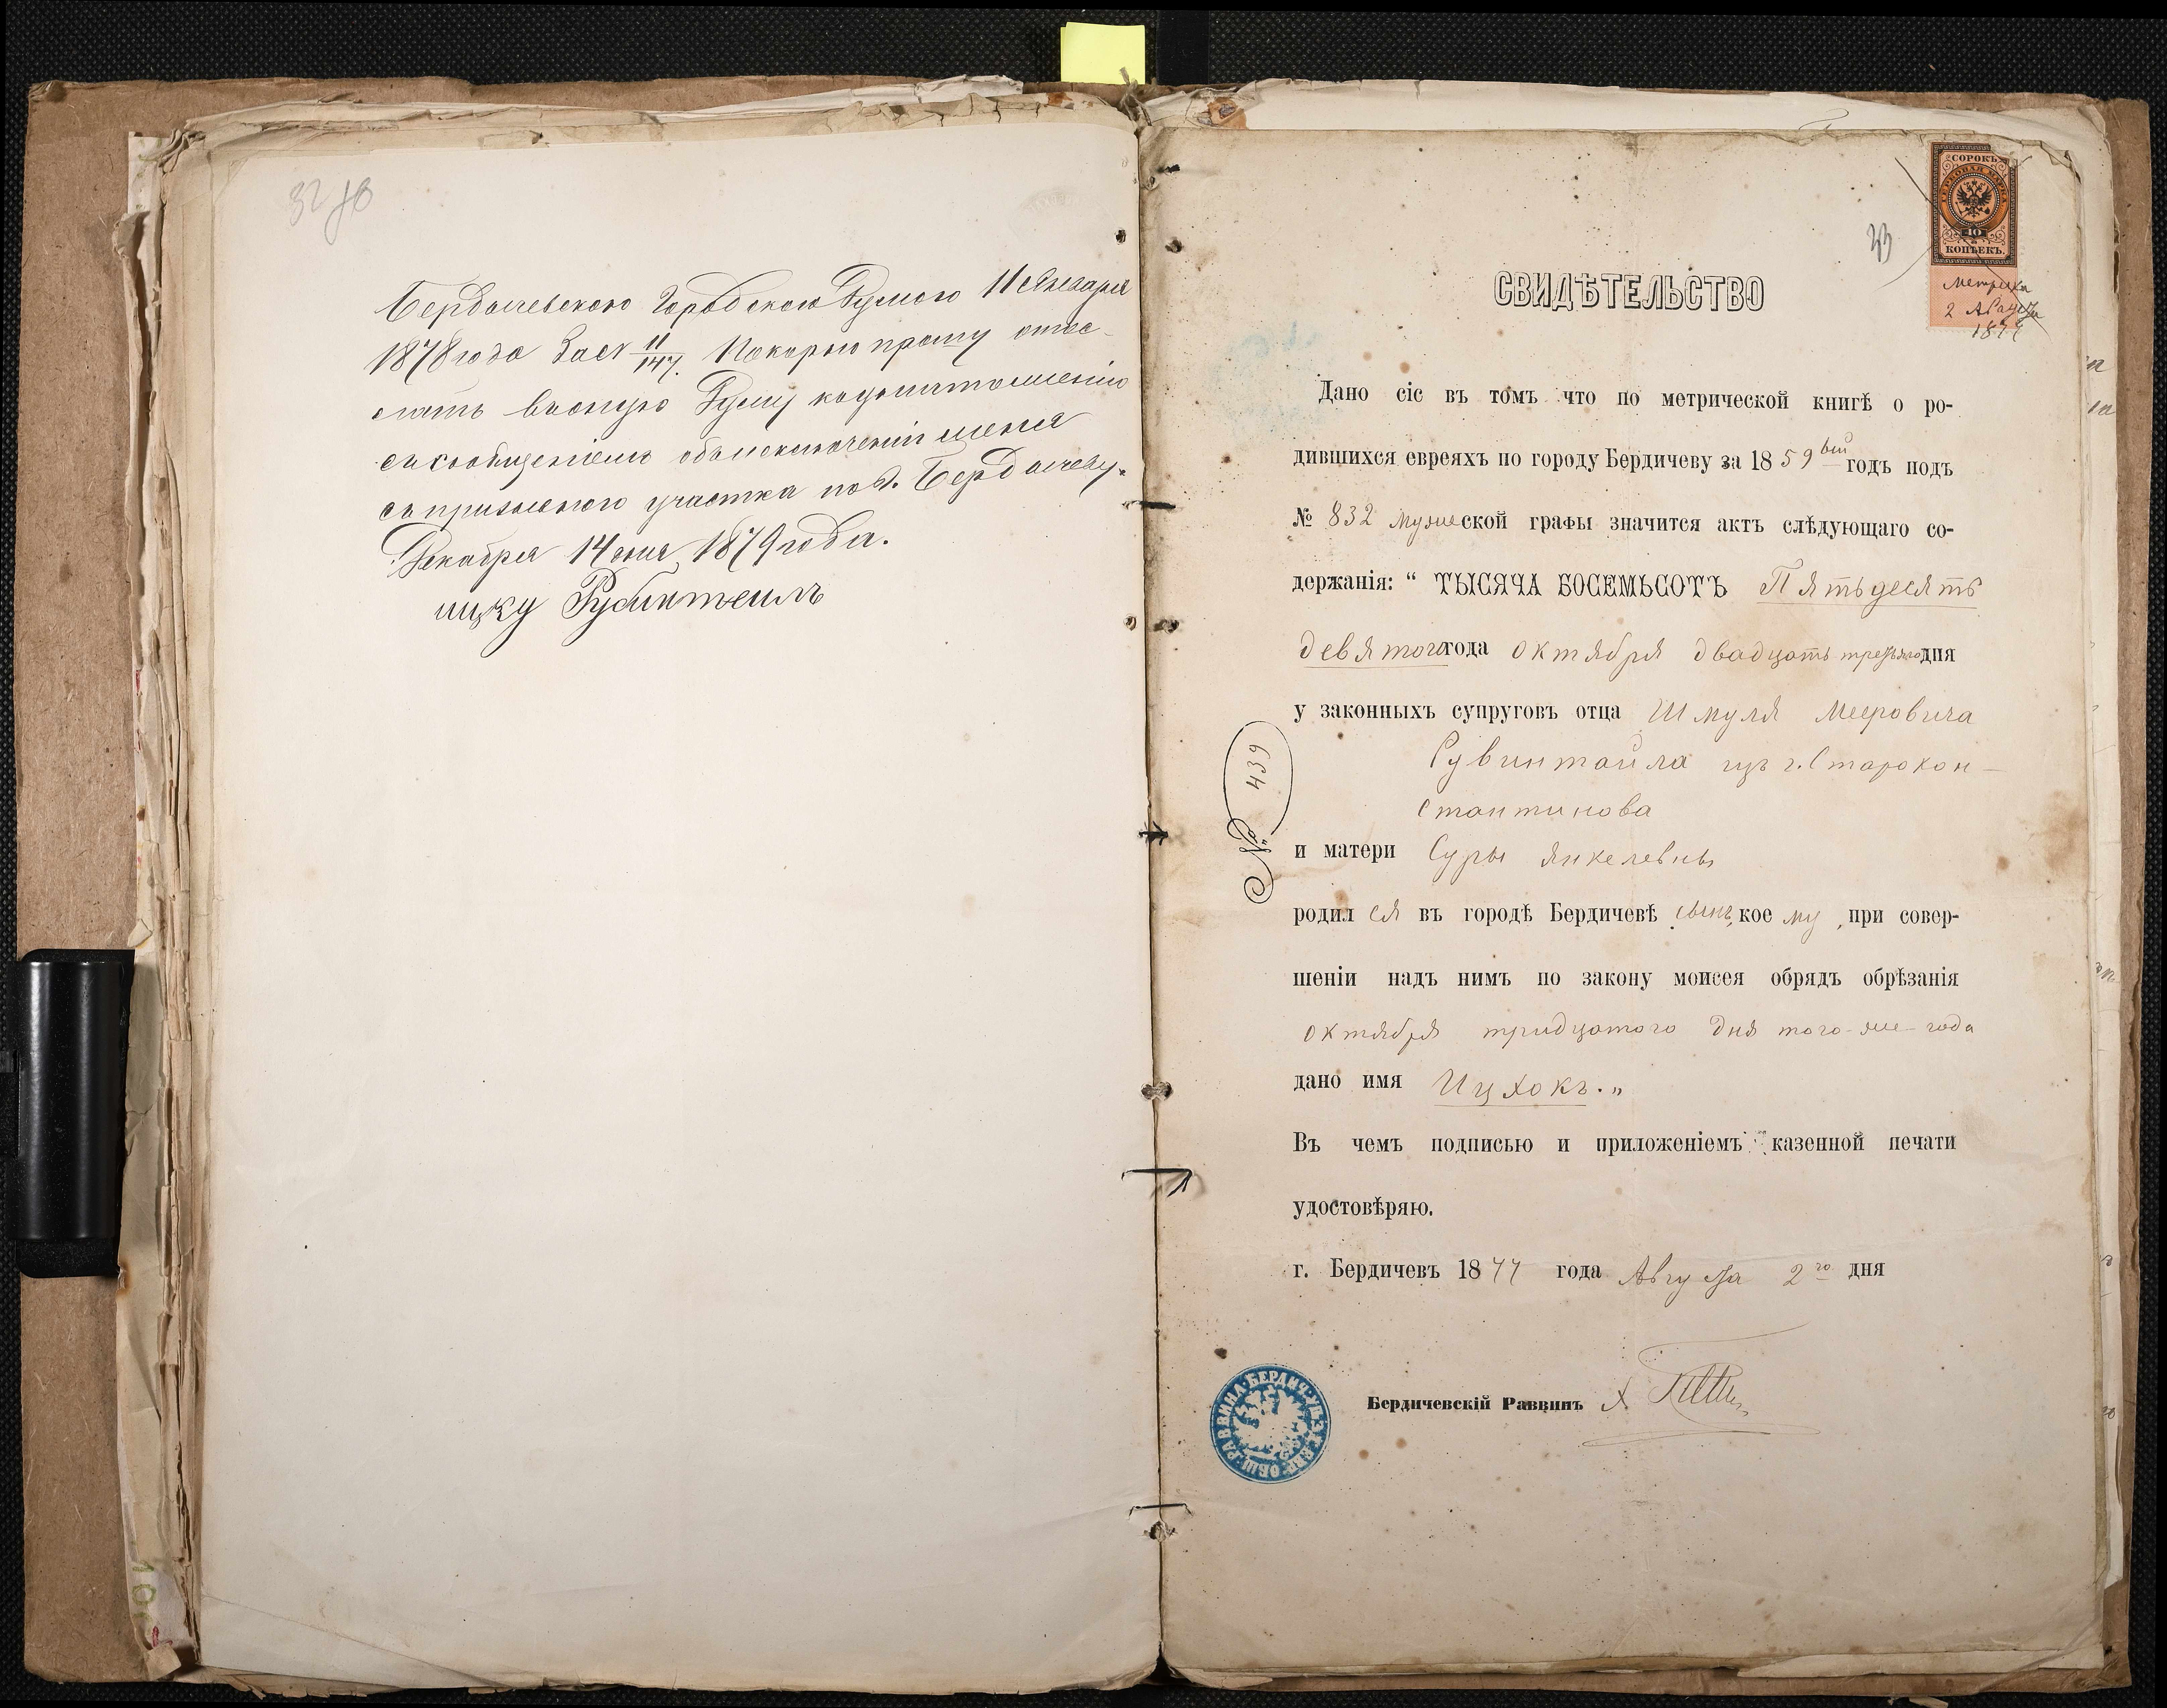 32
Бердичевскою Городскою Думою 11 Января
1878 года за № 11/147. Покорно прошу отос-
лать въ оную Думу къ уничтоженію
съ сообщеніемъ объ исключеніи меня
съ призывного участка по г. Бердичеву.
Декабря 14 дня 1879 года.
ицку Рубинтеилъ
СОРОКЪ
ГЕРБОВАЯ МАРКА
40
КОПѢЕКЪ.
Метрика
2 Августа
1877
СВИДѢТЕЛЬСТВО
Дано сіе въ томъ что по метрической книгѣ о ро-
дившихся евреяхъ по городу Бердичеву за 1859вый годъ подъ
№ 832 мужеской графы значится актъ слѣдующаго со-
держанія: “ ТЫСЯЧА ВОСЕМЬСОТЪ Пятьдесятъ
девятого года октября двадцать третьяго дня
у законныхъ супруговъ отца Шмуля Мееровича
Рувинтайла изъ г. Старокон-
стантинова
и матери Суры Янкелевны
родился въ городѣ Бердичевѣ сынъ, коему, при совер-
шеніи надъ нимъ по закону моисея обрядъ обрѣзанія
октября тридцатого дня того-же года
дано имя Ицхокъ.„
Въ чемъ подписью и приложеніемъ казенной печати
удостовѣряю.
г. Бердичевъ 1877 года Августа 2го дня
Бердичевскій Раввинъ
№ 439